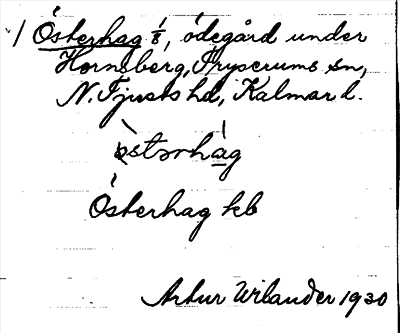 1/ Österhag 1/8, ödegård under
Hornsberg, Fryserums sn,
N. Tjusts hd, Kalmar l.
östərhág
Österhag kb
Artur Wilander 1930